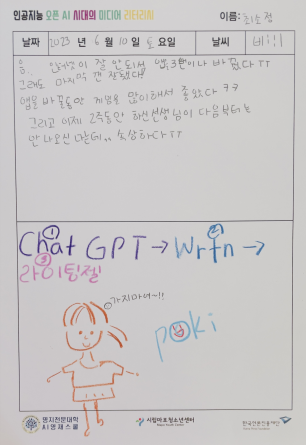 인공지능 오픈 AI 시대의 미디어 리터러시
이름: 최순정
날짜 2023 년 6 월 10 일 토 요일 날씨
음.. 인터넷이 잘 안되서 앱 3번이나 바꿨다 ㅠㅠ
그래도 마지막 껀 잘했다?
앱을 바꿀동안 게임을 많이해서 좋았다 ㅋㅋ
그리고 이제 2주동안 하신 선생님이 다음부터는
안 나오신다는데,, 속상하다 ㅠㅠ
① ②
Chat GPT → Wrtn →
③
라이팅젤
가지마여~!!
poki
명지전문대학
AI영재스쿨
시립마포청소년센터
한국언론진흥재단